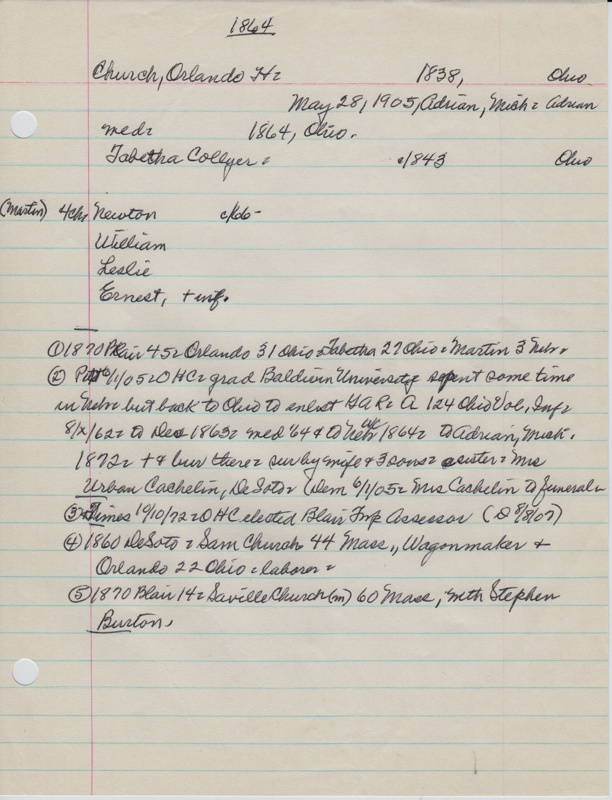 1864
Church, Orlando H= 1838, Ohio
May 28, 1905, Adrian, Mich= Adrian
med= 1864, Ohio.
Tabetha Collyer= c/1843 Ohio
(Martin) 4chs Newton c/66-
William
Leslie
Ernest, + inf.
① 1870 Blair 45= Orlando 31 Ohio= Tabetha 27 Ohio= Martin 3 Nebr=
② 6/1/05= OHC= grad Baldwin University spent some time
in Nebr= but back to Ohio to enlist GAR= A 124 Ohio Vol, Inf=
8/ /62= to Dec 1863= med '64 & to Nebr 1864= to Adrian, Mich.
1872= + & bur there= sur by wife & 3 sons= sister= Mrs
Urban Cachelin, DeSoto= (Dem 6/1/05= Mrs Cachelin to funeral=
③ Times 10/10/72= OHC elected Blair Twp Assessor (D 8/8/07)
④ 1860 DeSoto= Sam Church 44 Mass,, Wagonmaker +
Orlando 22 Ohio= laborer=
⑤ 1870 Blair 14= Saville Church (m) 60 Mass, with Stephen
Burton.